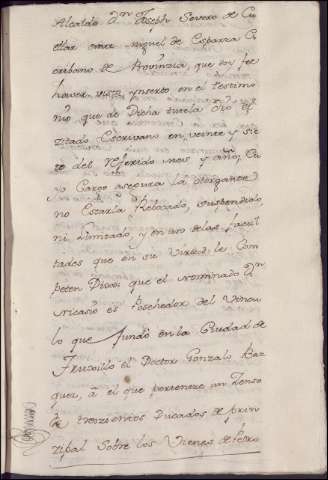 Alcalde Dn Joseph Severo de Cu
ellar ante Miguel de Esparza Es
cribano de Provinzia, que doy fee
haver visto ynserto en el testimo
nio que de Dicha tutela dio el
zitado Escrivano en veinte y sie
te del referido mes y año, Cu
yo Cargo asegura la otorgante
no Estarla Rebocado, suspendido,
ni Limitado, y en uso de las facul
tades que en su virtud le Com
peten Dixo: que el nominado Dn
Nicasio es Posehedor del Vincu
lo que fundó en la Ciudad de
Truxillo el Doctor Gonzalo Baz
quez, á el que perteneze un Zenso
de trezientos Ducados de prin
zipal Sobre los Vienes de Pedro